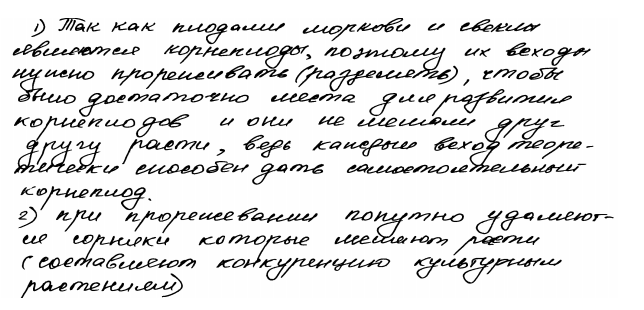 1) Так как плодами моркови и свеклы
являются корнеплоды, поэтому их всходы
нужно прореживать (разделять), чтобы
было достаточно места для развития
корнеплодов и они не мешали друг
другу расти, ведь каждый всход теоре-
тически способен дать самостоятельный
корнеплод.
2) при прореживании попутно удаляют-
ся сорняки которые мешают расти
(составляют конкуренцию культурным
растениям)